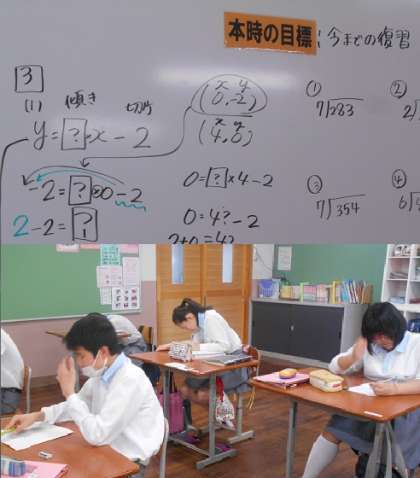 本時の目標：今までの復習
3
(1) 傾き 切片
y=?×x-2
x y
(0,-2)
x y
(4,0)
-2=?×0-2
2-2=?
0=?×4-2
0=4?-2
2+0=4?
① 7)283
②
③ 7)354
④ 6)